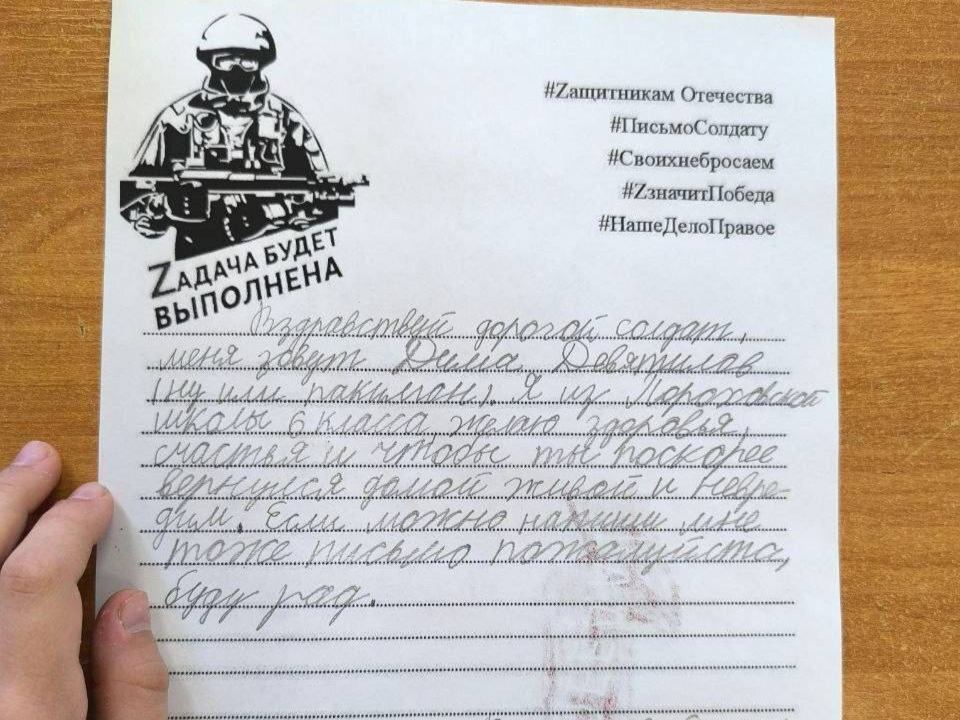 #Zащитникам Отечества
#ПисьмоСолдату
#Своихнебросаем
#ZзначитПобеда
#НашеДелоПравое
ZАДАЧА БУДЕТ
ВЫПОЛНЕНА
Вздравствуй дорогой солдат,
меня зовут Дима Девятилов
(ну или пакиман). Я из Пороховской
школы 6 класса желаю здоровья,
счастья и чтобы ты поскорее
вернулся домой живой и невре-
дим. Если можно напиши мне
тоже письмо пожалуйста,
буду рад.